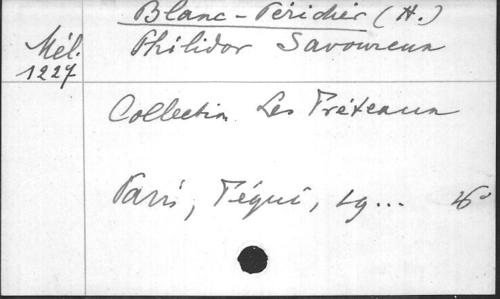 Blanc-Péridier (H.)
Mél. Philidor Savoureux
1227
Collection Les Tréteaux
Paris, Téqui, 19... 16°